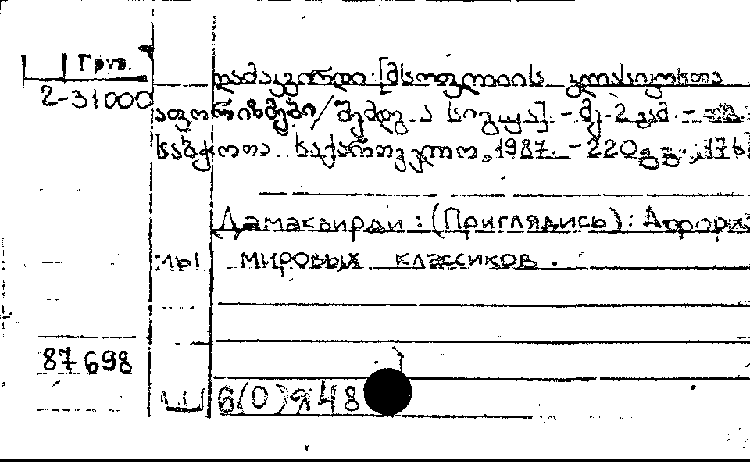 Груз.
2-31000
დამაკვირდი: [მსოფლიოს კლასიკოსთა
აფორიზმები/შემდგ. ა სიგუა]. - მე-2 გამ. -
საბჭოთა საქართველო, 1987. - 220გვ.; 17
Дамаквирди: (Приглядись): Афориз
мы мировых классиков.
87698
Ш6(0)я48